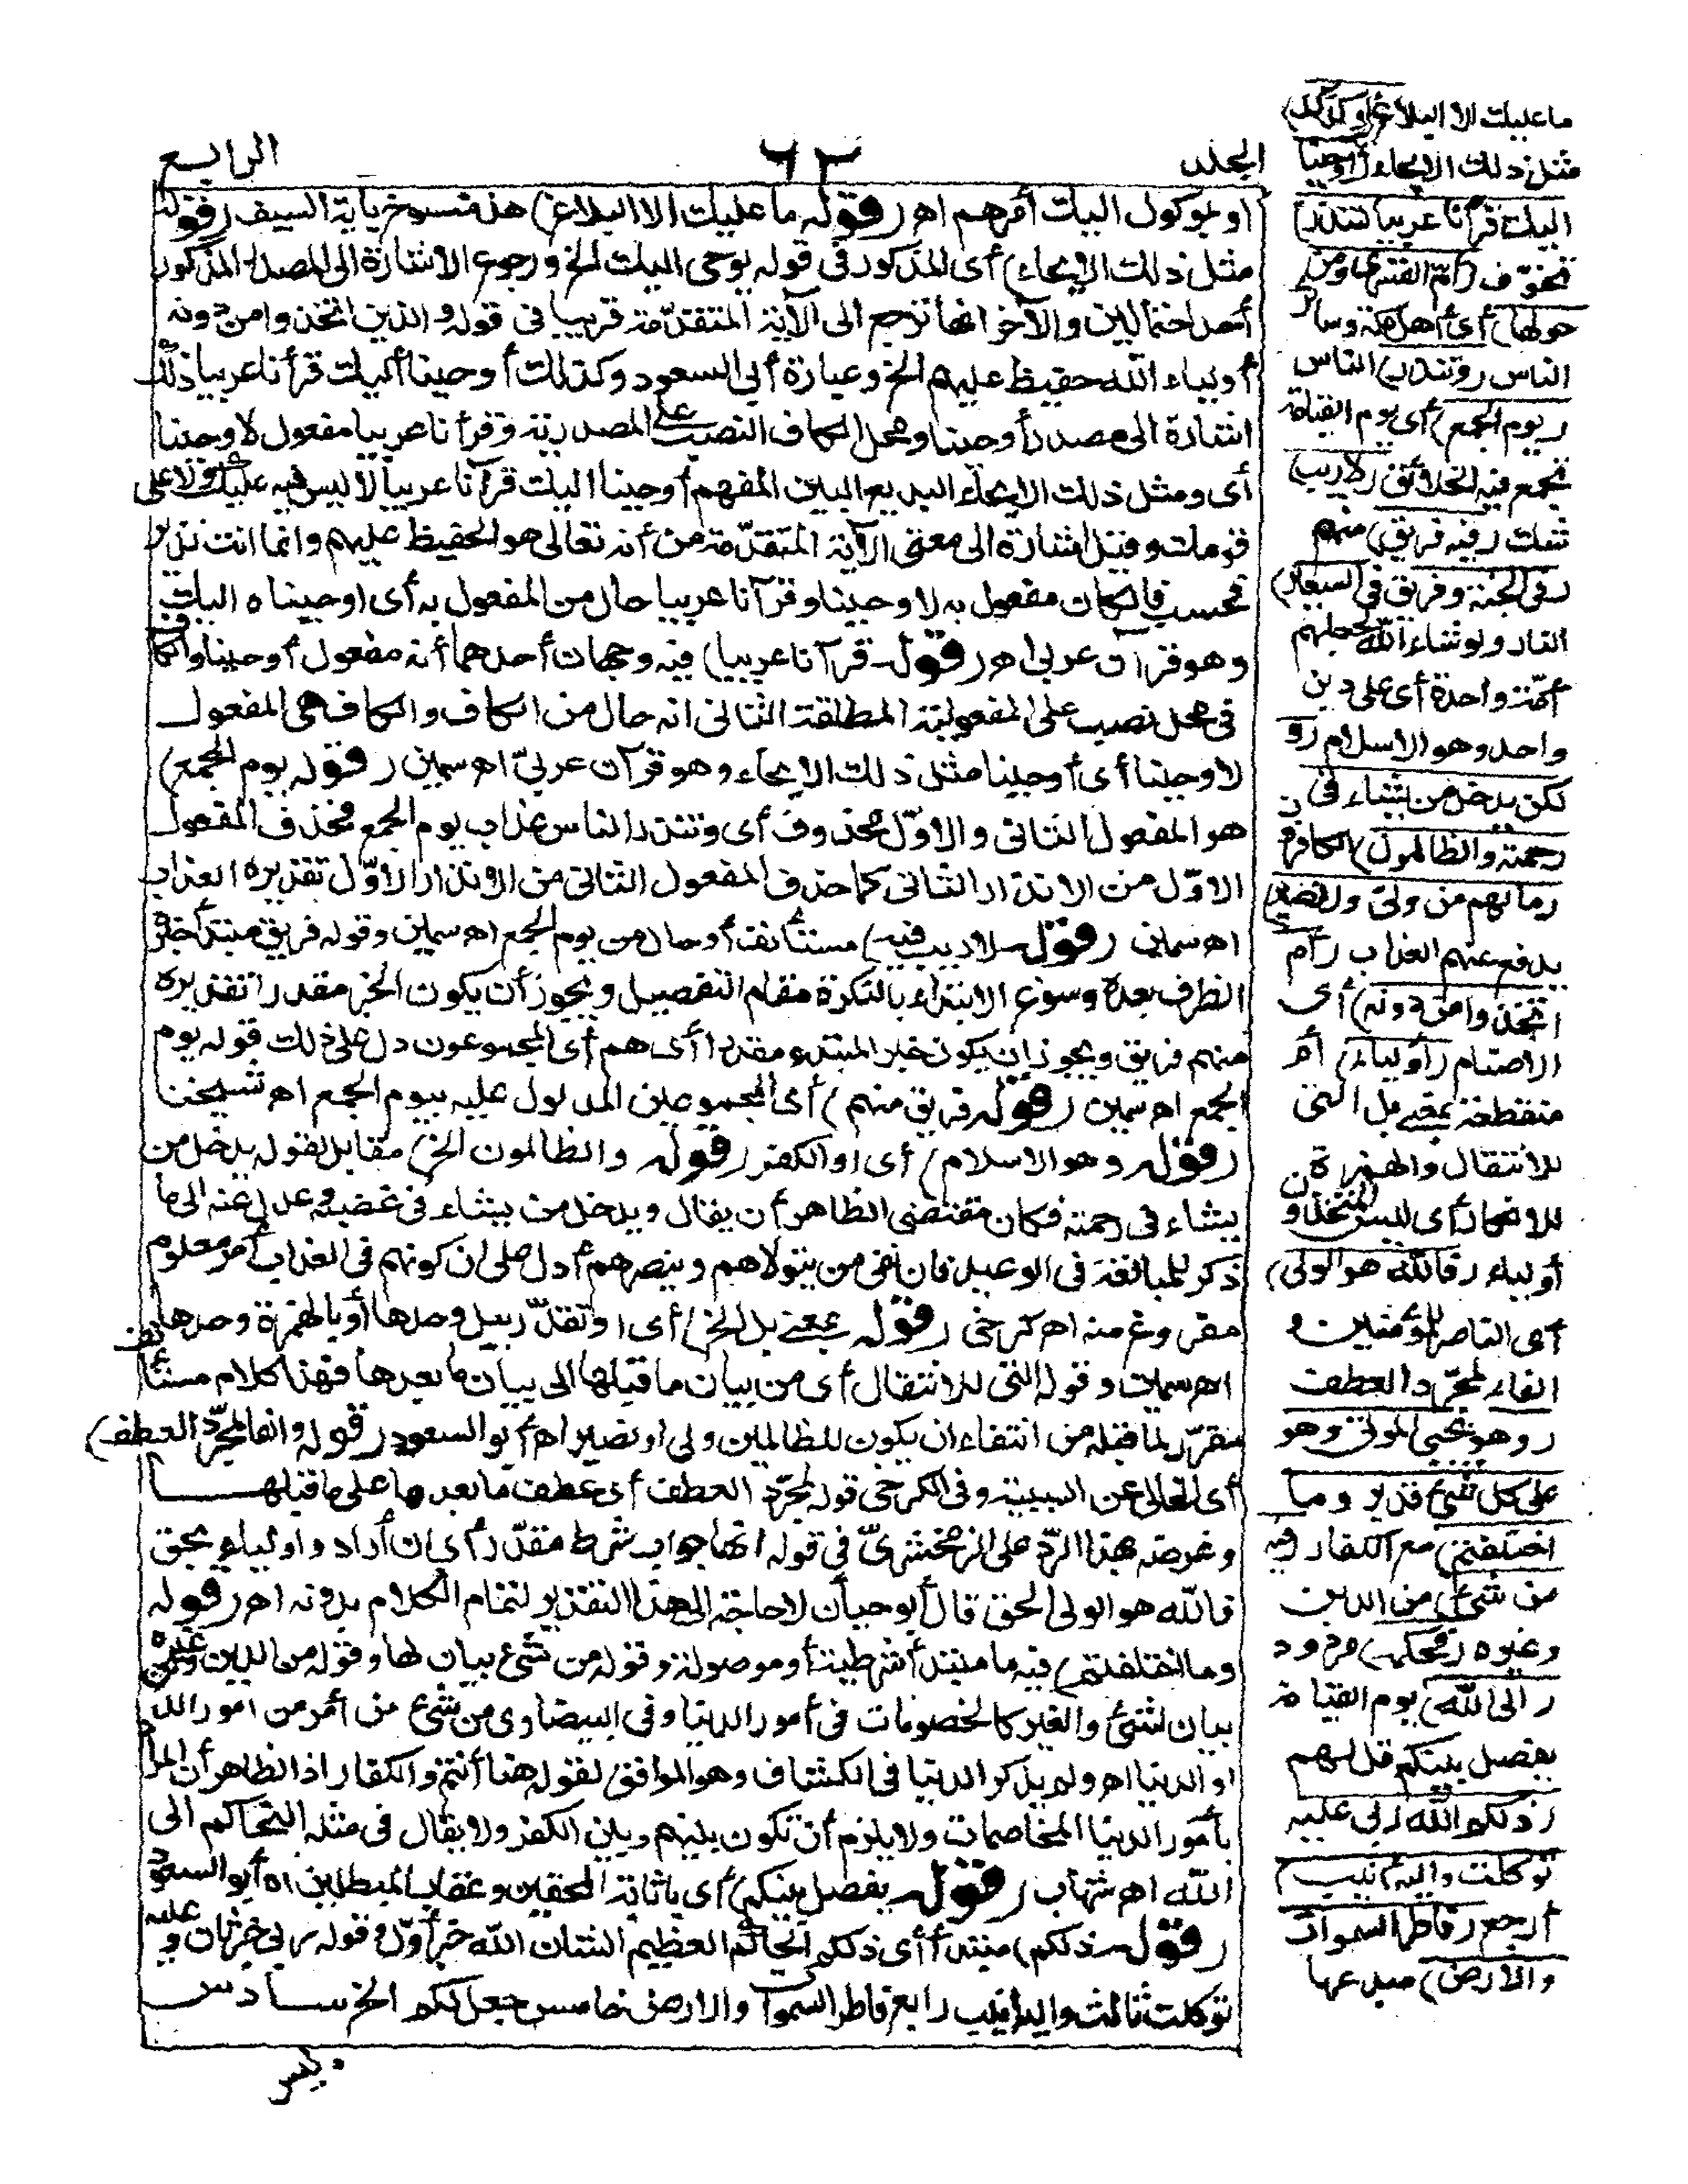 الجلد ٦٣ الرابع
أو بموكول اليك أمرهم اهـ (قوله ما عليك الا البلاغ) هذا منسوخ بآية السيف (قوله
مثل ذلك الايحاء) أى المذكور فى قوله يوحى اليك الخ ورجوع الاشارة الى المصدر المذكور
أحد احتمالين والآخر انها ترجع الى الآية المتقدّمة قريبا فى قوله والذين اتخذوا من دونه
أولياء الله حفيظ عليهم الخ وعبارة أبى السعود وكذلك أوحينا اليك قرأنا عربيا ذلك
اشارة الى مصدر أوحينا ومحل الكاف النصب على المصدرية وقرأنا عربيا مفعول لاوحينا
أى ومثل ذلك الايحاء البديع البين المفهم أوحينا اليك قرآنا عربيا لا ليس فيه عليك ولا على
قومك وقيل اشارة الى معنى الآية المتقدّمة من أنه تعالى هو الحفيظ عليهم وانما انت نذير
فحسب فالكاف مفعول به لاوحينا وقرآنا عربيا حال من المفعول به أى اوحيناه اليك
وهو قرآن عربى اهـ (قوله قرآنا عربيا) فيه وجهان أحدهما أنه مفعول أوحينا والكاف
فى محل نصب على المفعولية المطلقة الثانى انه حال من الكاف والكاف هى المفعول
لاوحينا أى أوحينا مثل ذلك الايحاء وهو قرآن عربىّ اهـ سمين (قوله يوم الجمع)
هو المفعول الثانى والاوّل محذوف أى وتنذر الناس عذاب يوم الجمع فحذف المفعول
الاوّل من الانذار الثانى كما حذف المفعول الثانى من الانذار الأوّل تقديره العذاب
اهـ سمين (قوله لا ريب فيه) مستأنف أو حال من يوم الجمع اهـ سمين وقوله فريق مبتدأ خبره
الظرف بعده وسوغ الابتداء بالنكرة مقام التفصيل ويجوز أن يكون الخبر مقدرا تقديره
منهم فريق ويجوز ان يكون خبر المبتدء مقدرا أى هم أى المجموعون دل على ذلك قوله يوم
الجمع اهـ سمين (قوله فريق منهم) أى المجموعين المدلول عليه بيوم الجمع اهـ شيخنا
(قوله وهو الاسلام) أى او الكفر (قوله والظالمون الخ) مقابل لقوله يدخل من
يشاء فى رحمته فكان مقتضى الظاهر أن يقال ويدخل من يشاء فى غضبه وعدل عنه الى ما
ذكر للمبالغة فى الوعيد فان نفى من يتولاهم وينصرهم أدل على ان كونهم فى العذاب أمر معلوم
مفروغ منه اهـ كرخى (قوله بمعنى بل الخ) أى او تقدّر ببل وحدها أو بالهمزة وحدها
اهـ سمين وقوله التى للانتقال أى من بيان ما قبلها الى بيان ما بعدها فهذا كلام مستأنف
مقرّر لما قبله من انتفاء ان يكون للظالمين ولى او نصير اهـ أبو السعود (قوله والفاء لمجرّد العطف)
أى الخالى عن السببية وفى الكرخى قوله لمجرّد العطف أى عطف ما بعدها على ما قبلها
وغرضه بهذا الردّ على الزمخشرىّ فى قوله انها جواب شرط مقدّر أى ان أراد وا اولياء بحق
فالله هو الولى الحق قال أبو حيان لا حاجة الى هذا التقدير لتمام الكلام بدونه اهـ (قوله
وما اختلفتم) فيه ما مبتدأ شرطية أو موصولة وقوله من شئ بيان لها وقوله من الدين وغيره
بيان لشئ والغير كالخصومات فى أمور الدنيا وفى البيضاوى من شئ من أمر من امور الدين
او الدنيا اهـ ولم يذكر الدنيا فى الكشاف وهو الموافق لقوله هنا أنتم والكفار اذ الظاهر أن المراد
بأمور الدنيا المخاصمات ولا يلزم أن تكون بينهم وبين الكفر ولا يقال فى مثله التحاكم الى
الله اهـ شهاب (قوله يفصل بينكم) أى باثابة المحقين وعقاب المبطلين اه أبو السعود
(قوله ذلكم) مبتدأ أى ذلكم الحاكم العظيم الشان الله خبر أوّل وقوله ربى خبر ثان وعليه
توكلت ثالث واليه انيب رابع فاطر السموات والارض خامس جعل لكم الخ سادس
ما عليك الا البلاغ (وكذلك)
مثل ذلك الايحاء (أوحينا
اليك قرآنا عربيا لتنذر)
تخوّف (أمّ القرى ومن
حولها) أى أهل مكة وسائر
الناس (وتنذر) الناس
(يوم الجمع) أى يوم القيامة
تجمع فيه الخلائق (لا ريب)
شك (فيه فريق) منهم
(فى الجنة وفريق فى السعير)
النار ولو شاء الله لجعلهم
أمّة واحدة أى على دين
واحد وهو الاسلام (و
لكن يدخل من يشاء فى
رحمته والظالمون) الكافرون
(ما لهم من ولىّ ولا نصير)
يدفع عنهم العذاب (أم
اتخذوا من دونه) أى
الاصنام (أولياء) أم
منقطعة بمعنى بل التى
للانتقال والهمزة
للانكار أى ليس المتخذون
أولياء (فالله هو الولى)
أى الناصر للمؤمنين و
الفاء لمجرّد العطف
(وهو يحيى الموتى وهو
على كل شئ قدير وما
اختلفتم) مع الكفار (فيه
من شئ) من الدين
وغيره (فحكمه) مردود
(الى الله) يوم القيامة
يفصل بينكم قل لهم
(ذلكم الله ربى عليه
توكلت واليه أنيب)
أرجع (فاطر السموات
والارض) مبدعها